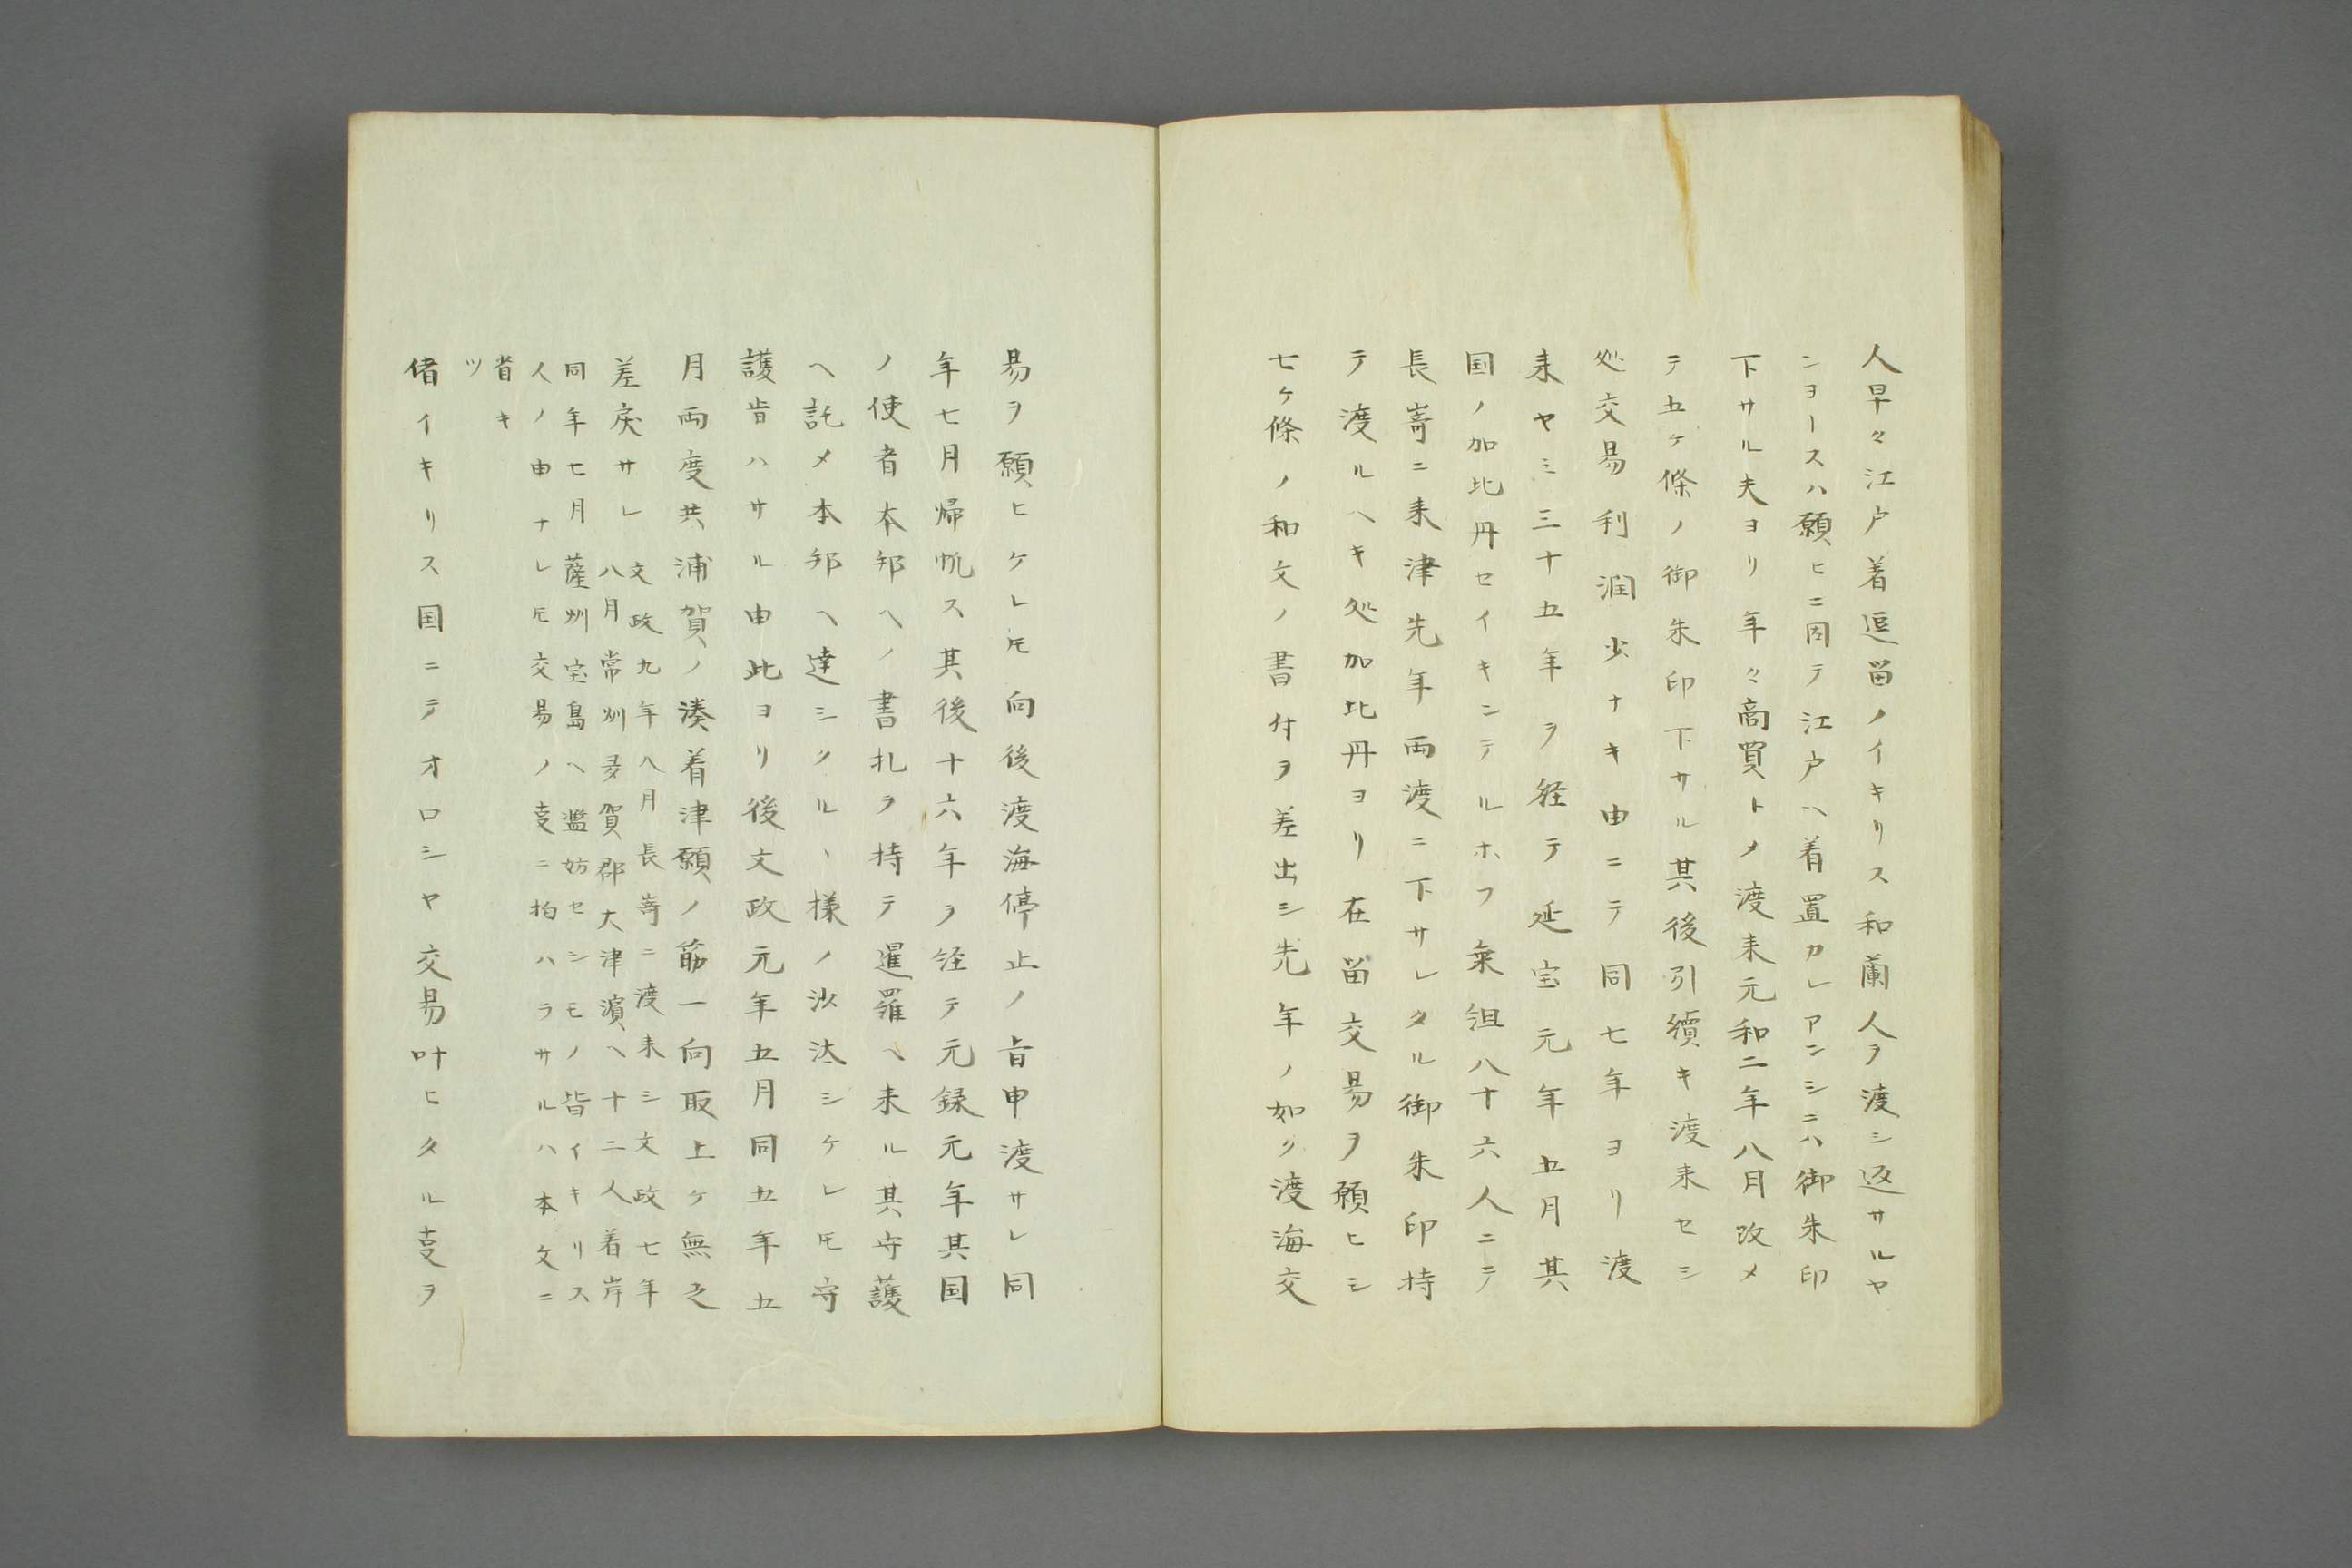 人早々江戸着逗留ノイキリス和蘭人ヲ渡シ返サルヤ
ンヨースハ願ヒニ因テ江戸ヘ着置カレアンシニハ御朱印
下サル夫ヨリ年々商買トメ渡来元和二年八月改メ
テ五ケ條ノ御朱印下サル其後引續キ渡来セシ
処交易利潤少ナキ由ニテ同七年ヨリ渡
来ヤミ三十五年ヲ経テ延宝元年五月其
国ノ加比丹セイキンテルホフ乗組八十六人ニテ
長嵜ニ来津先年両渡ニ下サレタル御朱印持
テ渡ルヘキ処加比丹ヨリ在留交易ヲ願ヒシ
七ケ條ノ和文ノ書付ヲ差出シ先年ノ如ク渡海交
易ヲ願ヒケレ𪜈向後渡海停止ノ旨申渡サレ同
年七月帰帆ス其後十六年ヲ経テ元録元年其国
ノ使者本邦ヘノ書札ヲ持テ暹羅ヘ来ル其守護
ヘ託メ本邦ヘ達シクルヽ様ノ沙汰シケレ𪜈守
護肯ハサル由此ヨリ後文政元年五月同五年五
月両度共浦賀ノ湊着津願ノ筋一向取上ケ無之
差戻サレ
文政九年八月長嵜ニ渡来シ文政七年
八月常州多賀郡大津濵ヘ十二人着岸
同年七月薩州宝島ヘ濫妨セシモノ皆イキリス
人ノ由ナレ𪜈交易ノ㕝ニ拘ハラサルハ本文ニ
省キ
ツ
偖イキリス国ニテオロシヤ交易叶ヒタル㕝ヲ